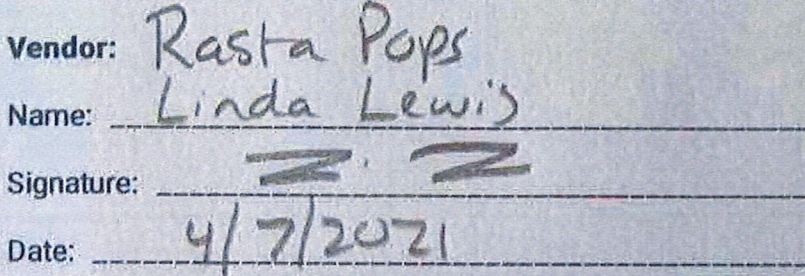 Vendor: Rasta Pops
Name: Linda Lewis
Signature: Z. Z
Date: 4/7/2021